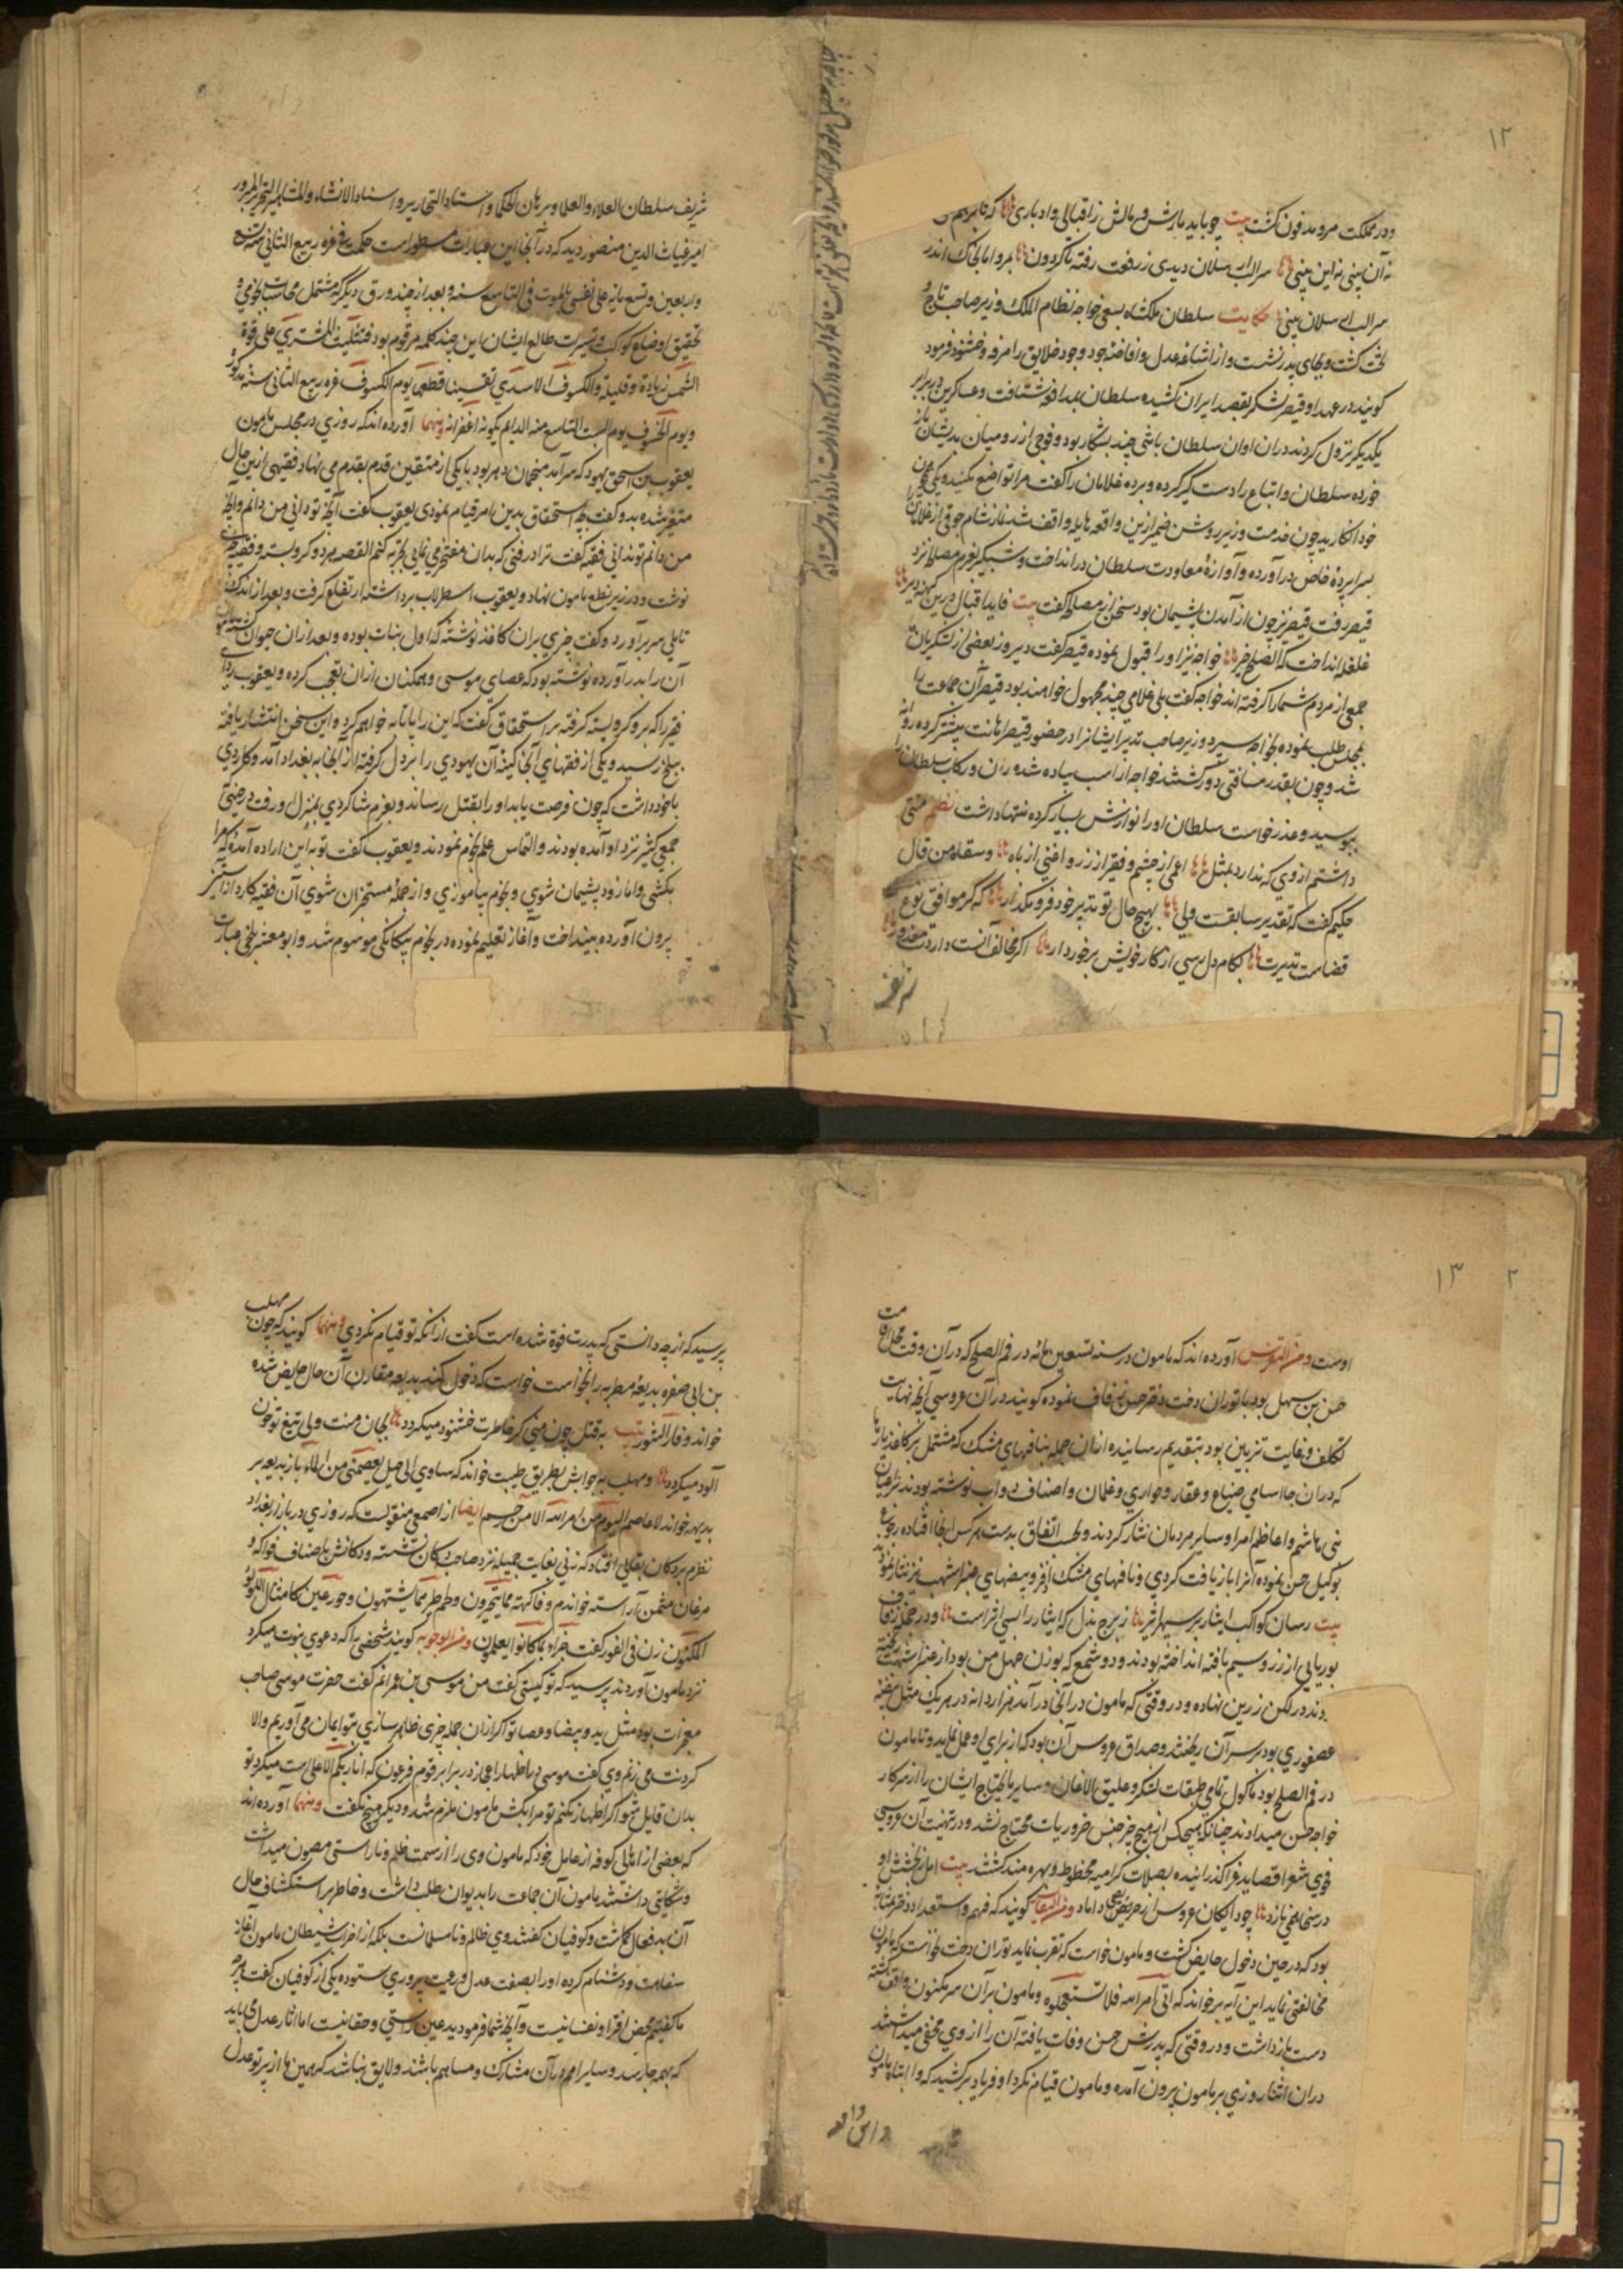 ۱۲
ودر مملکت مرو مدفون گشت بیت چو باید مالش و مالش ز اقبالی و ادباری
نه آن بینی نه این بینی سر الب ارسلان دیدی ز رفعت رفته تا گردون بمرو آ تا بخاک اندر
سر الب ارسلان بینی حکایت سلطان ملکشاه بسعی خواجه نظام الملک وزیر صاحب تاج و
تخت گشت و بجای پدر نشست و از اشاعه عدل و افاضه جود وجود خلایق را مرفه و خشنود فرمود
گویند در عهد او قیصر لشکر بقصد ایران کشیده سلطان بمدافعه شتافت و عساکرین در برابر
یکدیگر نزول کردند در آن اوان سلطان با تنی چند بشکار بود و فوجی از رومیان بدیشان باز
خورده سلطان و اتباع را دستگیر کرده و برده غلامان را گفت مرا تواضع مکنید و یکی همچون
خود انگارید چون خدمت وزیر روشن ضمیر ازین واقعه هایله واقف شد نماز شام جوقی از غلامان را
بسراپرده خاص در آورده و آوازه معاودت سلطان در انداخت و شبگیر بعزم مصالحه نزد
قیصر رفت قیصر نیز چون از آمدن پشیمان بود سخن از مصالحه گفت بیت
غلغله انداخت که الصلح خیر خواجه نیز او را قبول نموده قیصر گفت دیروز بعضی از لشکریان
جمعی از مردم شما را گرفته اند خواجه گفت بلی غلامی چند مجهول خواهند بود قیصر آن جماعت را
بمجلس طلب نموده بخواجه سپرد وزیر صاحب تدبیر ایشانرا در حضور قیصر اهانت بیشتر کرده روانه
شد و چون بقدر مسافتی دور گشتند خواجه از اسب پیاده شده ران و رکاب سلطان را
ببوسید و عذر خواست سلطان او را نوازش بسیار کرده منتها داشت نظم منتی
داشتم از وی که ندارد بمثل اعمی از چشم و فقیر از زر و افعی از باه وسقاه من قال
حکیم گفت که تقدیر سابقست ولی بهیچ حال تو تدبیر خود فرو مگذار که گر موافق نوع
قضاست تدبیرت بکام دل رسی از کار خویش برخوردار اگر مخالف آنست داردت معذور
شریف
شریف سلطان العلماء والعلا و برهان الحکما و استاد التحاریر و اسناد الانشاء والمشاهیر التحریر المبرور
امیر غیاث الدین منصور دید که در آنجا این عبارات مسطور است حکمت فی غره ربیع الثانی سنة تسع
واربعین وتسعمایه علی نفسی بالموت فی التاسع سنه و بعد از چند ورق دیگر که مشتمل محاسبات نجومی و
تحقیق اوضاع کواکب و تسییرات طالع ایشان این چند کلمه مرقوم بود فتثلیث المشتری علی قوة
الشمس زیادة و قلیلة والکسوف الاسدی تقسینا قطعی یوم الکسوف غره ربیع الثانی سنه مذکور
ویوم الخروف یوم السبت التاسع منه الدایم بکونه اغفر انه ومنها آورده اند که روزی در مجلس مامون
یعقوب بن اسحق یهود که سرآمد منجمان دهر بود با یکی از متقین قدم بقدم می نهاد فقیهی ازین حال
متغیر شده بدو گفت بچه استحقاق بدین امر قیام نمودی یعقوب گفت آنچه تو دانی من دانم و آنچه
من دانم تو ندانی فقیه گفت ترا در فنی که بدان مفتخر می نمایی تجربه کنم القصه برد و گرو بستند و فقیه چیزی
نوشت و در زیر نطع مامون نهاد و یعقوب اسطرلاب برداشته ارتفاع گرفت و بعد از اندک
تاملی سر بر آورد و گفت چیزی بران کاغذ نوشته که اول نبات بوده و بعد از آن حیوان گشته
آن را بدر آورده نوشته بود که عصای موسی و همکنان از آن تعجب کرده و یعقوب ردای
فقیر را که برو گرو بسته گرفته بر استحقاق گفت که این را پاتابه خواهم کرد و این سخن انتشار یافته
ببلخ رسید و یکی از فقهای آنجا کینه آن یهودی را بر دل گرفته از آنجا به بغداد آمد و کاردی
با خود داشت که چون فرصت یابد او را بقتل رساند و بعزم شاگردی بمنزل او رفت در حینی که
جمعی کثیر نزد او آمده بودند و التماس علم نجوم نمودند و یعقوب گفت تو به این اراده آمده که مرا
بکشی و اما زود پشیمان شوی و نجوم بیاموزی و از جمله مستخرجان شوی آن فقیه کارد از آستین
بیرون آورده بینداخت و آغاز تعلیم نموده در نجوم بیکانگی موسوم شد و ابو معشر بلخی عبارت
۱۳ ۲
اوست ومن التفرس آورده اند که مامون در سنه تسعین مائه در فم الصلح که در آن وقت محل اقامت
حسن بن سهل بود با توران دخت دختر حسن زفاف نموده گویند در آن عروسی آنچه نهایت
تکلف و غایت تزیین بود بتقدیم رسانیده از آن جمله نافهای مشک که مشتمل بر کاغذ پارها
که در آن جا اسامی ضیاع و عقار و جواری و غلمان و اصناف دواب نوشته بودند بر اعیان
بنی هاشم و اعاظم امرا و سایر مردمان نثار کردند و بحسب اتفاق بدست هر کس از آنها افتاده رجوع
بوکیل حسن نموده آنرا بازیافت کردی و نافهای مشک اذفر و بیضهای عنبر اشهب نیز نثار نمودند
بیت رسان کواکب ایثار بر سپهر اثیر ز برج بذل که ایثار را بسی اثر است و در حجله زفاف
بوریایی از زر و سیم بافته انداخته بودند و دو شمع که بوزن چهل من بود از عنبر اشهب ریخته
بودند در لگن زرین نهاده و در وقتی که مامون در آنجا در آمد هزار دانه در هر یک مثل بیضه
عصفوری بود بر سر آن ریختند و صداق عروس آن بود که از برای او عمل نماید و تا مامون
در فم الصلح بود ماکول تمامی طبقات لشکر و علیق الاغان و سایر مایحتاج ایشان را از سرکار
خواجه حسن میدادند چنانکه هیچکس از هیچ چیز جنس ضروریات محتاج نشد و در تهنیت آن عروسی
فوجی شعرا قصاید غرا گذرانیده بصلات گرامیه محظوظ و بهره مند گشتند بیت امل ز بخشش او
در سخا همی نازد چو دایگان عروس از حریصی داماد ومن النفائس گویند که فهم و استعداد دختر بمثابه
بود که در حین دخول حایض گشت و مامون خواست که تقرب نماید توران دخت نخواست که مامون
مخالفتی نماید این آیه بر خواند که اتی امر الله فلا تستعجلوه و مامون بر آن سر مکنون واقف گشته
دست باز داشت و در وقتی که پدرش حسن وفات یافته آن را از وی مخفی میداشتند
در آن اثنا روزی بر مامون بیرون آمده و مامون قیام نکرد او فریاد بر کشید که وا ابتاه مامون
پرسید که از چه دانستی که پدرت فوة شده است گفت از آنکه تو قیام نکردی ومنها گویند که چون مهلب
بن ابی صفره بدیعه مطربه را بخواست خواست که دخول کند بدیعه مقارن آن حال حایض شده
خواند وفار التنور بیت به قتل چون منی گر خاطرت خشنود میگردد بجان منت ولی تیغ تو خون
آلود میگردد و مهلب به جوابش بطریق طیبت خواند که ساوی الی جبل یعصمنی من الماء باز بدیعه بر
بدیهه خواند لا عاصم الیوم من امر الله الا من رحم ایضا از اصمعی منقولست که روزی در بازار بغداد
نظرم بر دکان بقالی افتاد که زنی بغایت جمیله نزد صاحب دکان نشسته و دکانش باصناف فواکه و
مرغان مثمن آراسته خواندم وفاکهة مما یتخیرون ولحم طیر مما یشتهون وحور عین کامثال اللؤلؤ
المکنون زن فی الفور گفت جزاء بما کانوا یعملون ومن الاجوبه گویند شخصی را که دعوی نبوت میکرد
نزد مامون آوردند پرسید که تو کیستی گفت من موسی بن عمرانم گفت حضرت موسی صاحب
معجزات بود مثل ید و بیضا و عصا تو اگر از آن جمله چیزی ظاهر سازی بتو ایمان می آوریم والا
گردنت می زنم وی گفت موسی با اظهار اعجاز در برابر قوم فرعون که انا ربکم الاعلی است میکرد تو
بدان قایل شو اگر اظهار نکنم تو مرا بکش مامون ملزم شد و دیگر هیچ نگفت ومنها آورده اند
که بعضی از اهالی کوفه از عامل خود که مامون وی را از سمت ظلم و ناراستی مصون میداشت
و شکایتی داشتند مامون آن جماعت را بدیوان طلب داشت و خاطر بر استکشاف حال
آن بد فعال گماشت و کوفیان گفتند وی ظالم و نامسلمانست بلکه از احزاب شیطان مامون آغاز
سفاهت و دشنام کرده او را بصفت عدل و رعیت پروری ستوده یکی از کوفیان گفت هر چه
ما گفتیم محض افترا و نفسانیست و آنچه شما فرمودید عین راستی و حقانیت اما آثار عدل می باید
که بهمه جا رسد و سایر امم در آن مشارک و مساهم باشند و لایق نباشد که همین ما از پرتو عدل